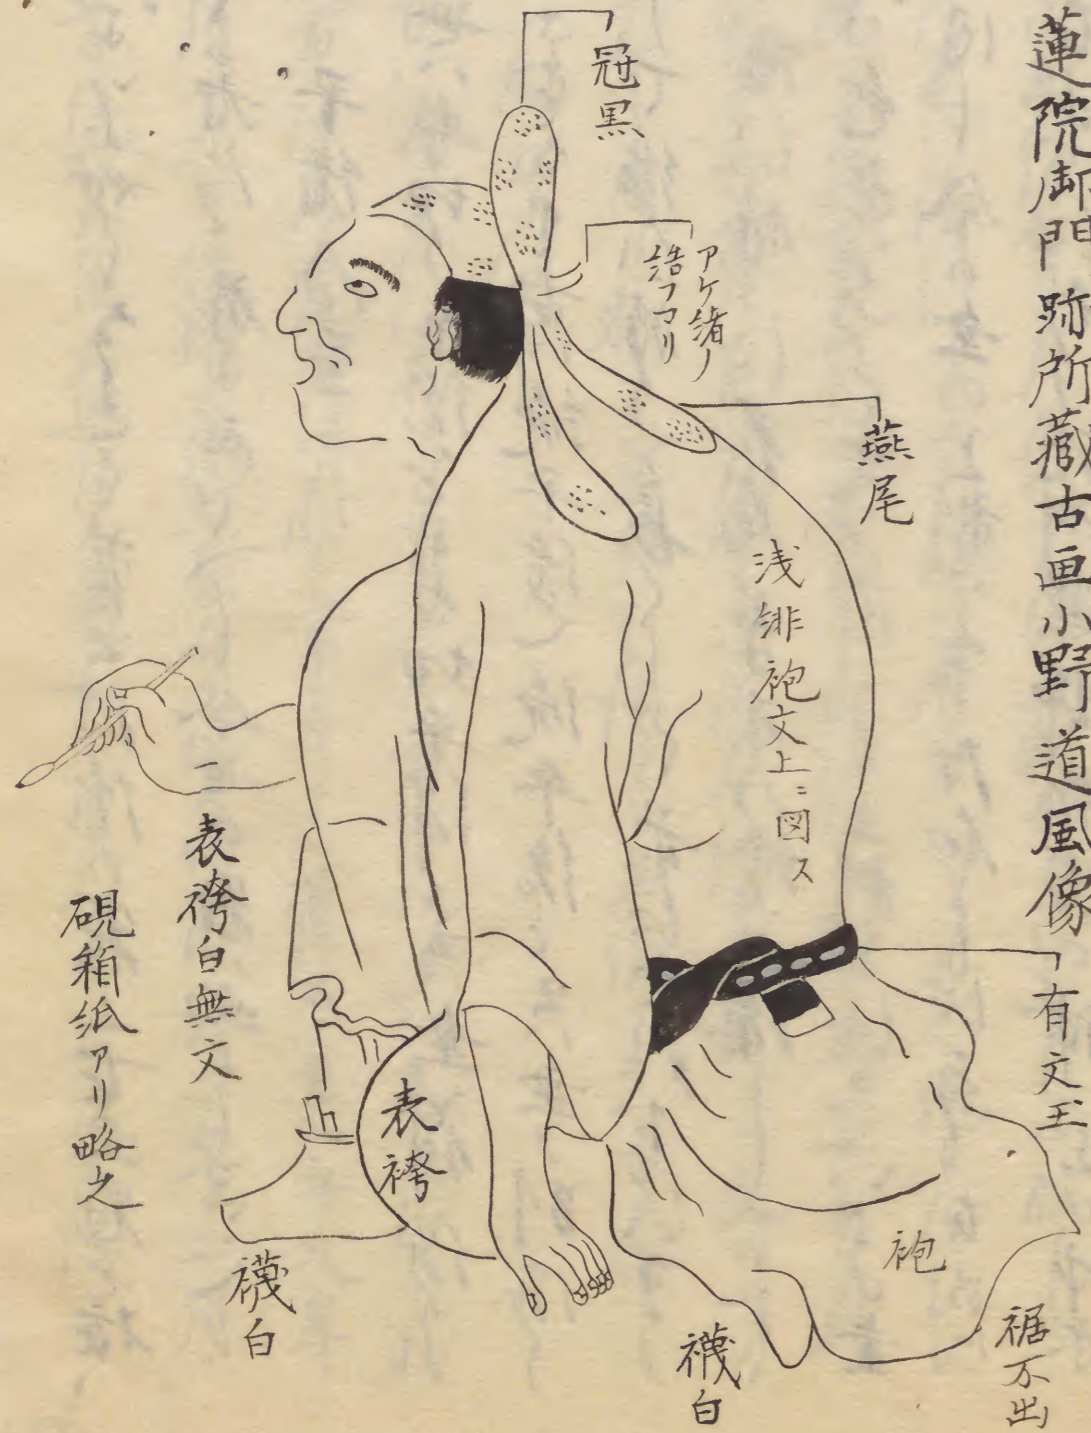 蓮院御門跡所蔵古画小野道風像
冠黒
アケ緒ノ
結フコリ
燕尾
浅緋袍文上ニ図ス
有文玉
表袴白無文
硯箱紙アリ略之
表袴
襪白
袍
襪白
裾不出